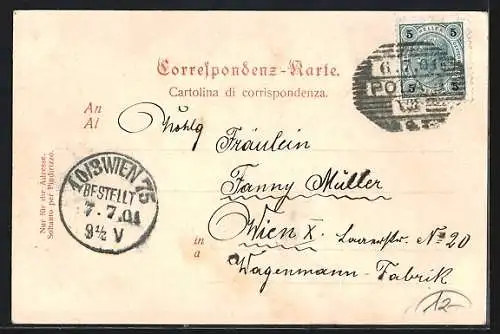 5 5
HELLER
5 5
6.7.01
PO
Correspondenz-Karte.
Cartolina di corrispondenza.
An
Al
Fräulein
Fanny Müller
Wien X. Laaerstr. No 20
in
a
Wagenmann-Fabrik
Nur für die Adresse.
Soltanto per l'indirizzo.
10/3 WIEN 75
BESTELLT
7.7.01
9½ V
12-